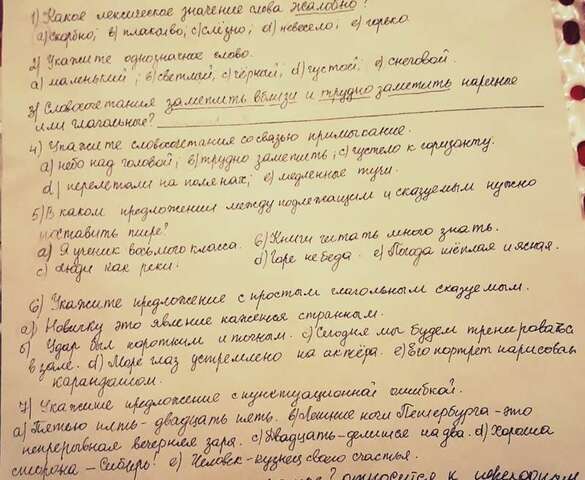 1) Какое лексическое значение слова жалобно?
а) скорбно; в) плаксиво; с) слёзно; d) невесело; е) горько.
2) Укажите однозначное слово.
а) маленький; в) светлый; с) чёрный; d) густой; е) снеговой.
3) Словосочетания заметить вблизи и трудно заметить наречные
или глагольные?
4) Укажите словосочетания со связью примыкание.
а) небо над головой; в) трудно заметить; с) густело к горизонту.
d) перелетали на полянах; е) медленные тучи.
5) В каком предложении между подлежащим и сказуемым нужно
поставить тире?
а) Я ученик восьмого класса. в) Книги читать много знать.
с) Люди как реки. d) Горе не беда. е) Погода тёплая и ясная.
6) Укажите предложение с простым глагольным сказуемым.
а) Новичку это явление кажется странным.
б) Удар был коротким и точным. с) Сегодня мы будем тренироваться
в зале. d) Море глаз устремлено на актёра. е) Его портрет нарисован
карандашом.
7) Укажите предложение с пунктуационной ошибкой?
а) Пятью пять - двадцать пять. в) Летние ночи Петербурга - это
непрерывная вечерняя заря. с) Двадцать - делится на два. d) Хороша
сторона - Сибирь! е) Человек - кузнец своего счастья.
относится к